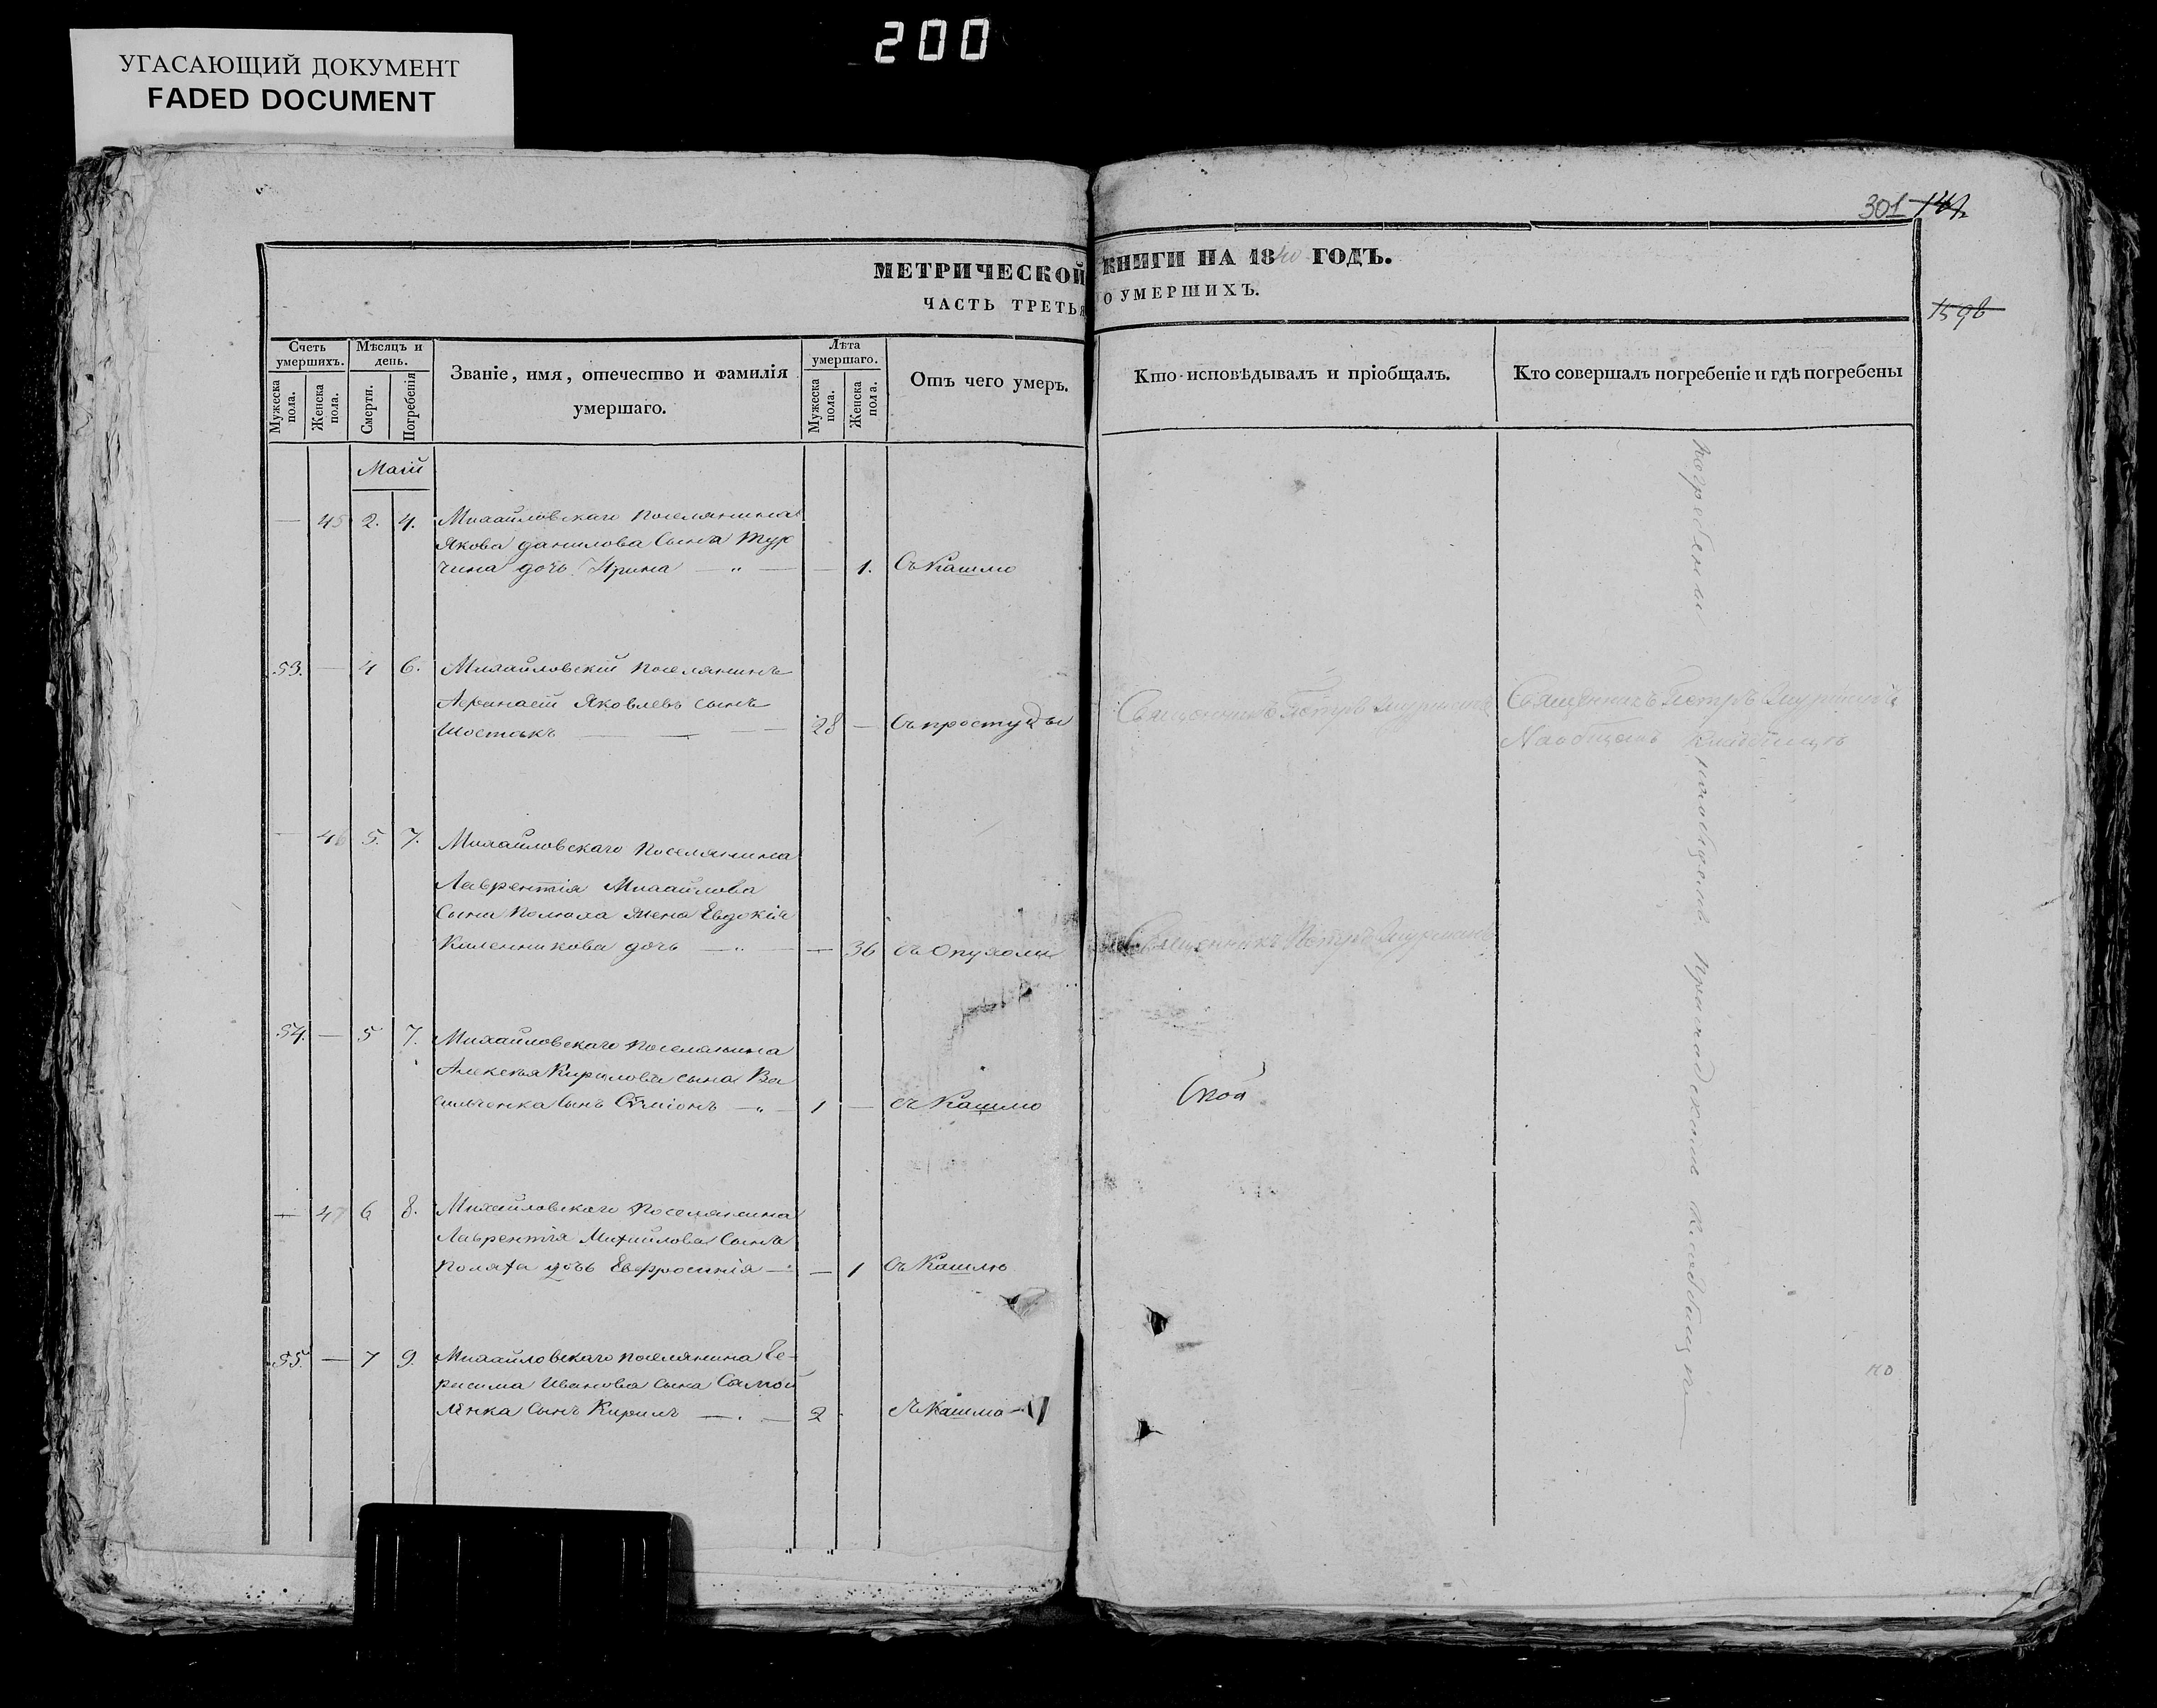 200
УГАСАЮЩИЙ ДОКУМЕНТ
FADED DOCUMENT
301
МЕТРИЧЕСКОЙ КНИГИ НА 1840 ГОДЪ.
ЧАСТЬ ТРЕТЬЯ О УМЕРШИХЪ.
Счетъ умершихъ.
Мужеска пола.
Женска пола.
Мѣсяцъ и день.
Смерти.
Погребенія
Званіе, имя, отечество и фамилія умершаго.
Лѣта умершаго.
Мужеска пола.
Женска пола.
Отъ чего умеръ.
Кто исповѣдывалъ и пріобщалъ.
Кто совершалъ погребеніе и гдѣ погребены
Маій
— 45 2. 4. Михайловскаго поселянина
Якова данилова Сына Тур
чина дочь Ирина — „ — — 1. Съ Кашлю
53. — 4 6. Михайловскій поселянинъ
Афанасій Яковлевъ сынъ
Шостакъ — — — 28 — Съ простуды
Священникъ Петръ
Священникъ Петръ
На общемъ кладбищѣ
— 46 5. 7. Михайловскаго поселянина
Лаврентія Михайлова
Сына Полюха жена Евдокія
дочь — „ — — 36 съ Опухоли
Священникъ Петръ
54. — 5 7. Михайловскаго поселянина
Алексѣя Кирилова сына Ва
сильченка Сынъ Симіонъ — „ — 1 — съ Кашлю
— 47 6 8. Михайловскаго поселянина
Лаврентія Михайлова Сына
дочь Евфросинія — — 1 Съ Кашлю
55. — 7 9. Михайловскаго поселянина Ге-
расима Иванова Сына Самой
ленка Сынъ Кирилъ — . — 2 съ Кашлю
погребены на общемъ приходскомъ кладбищѣ